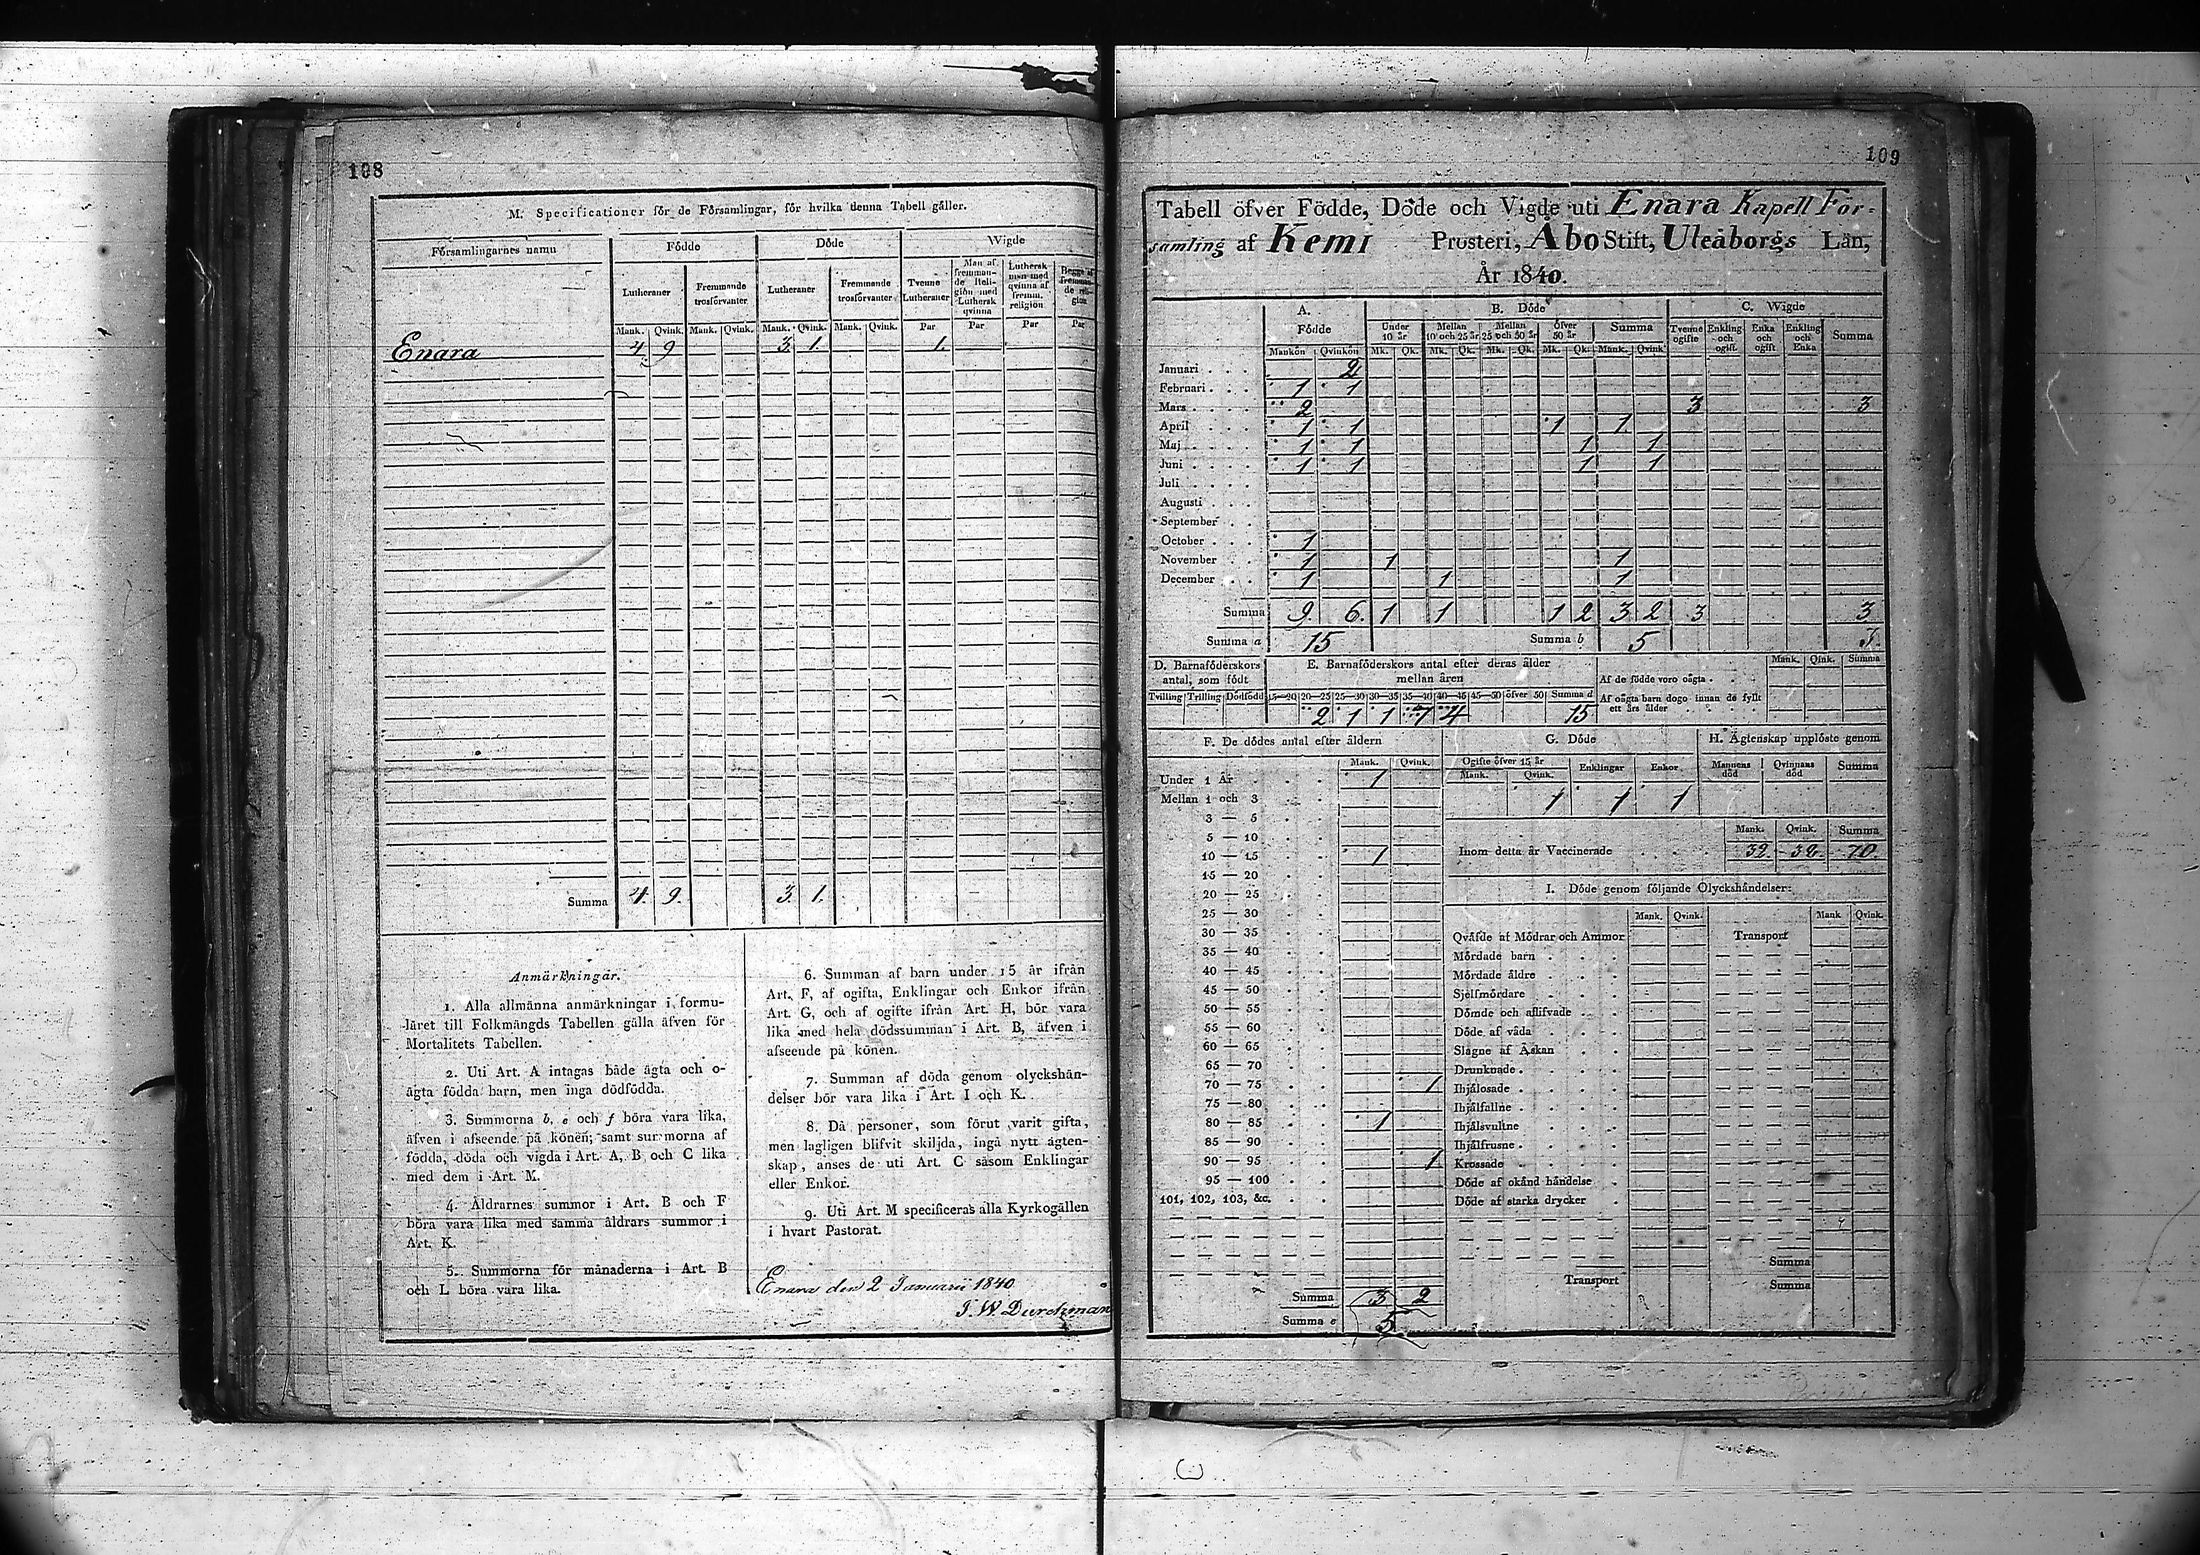 108
M. Specificationer för de Församlingar, för hvilka denna Tabell gäller.
Församlingarnes namn Födde Döde Wigde
Lutheraner Fremmande trosförvanter Lutheraner Fremmande trosförvanter Tvenne Lutheraner Man af fremmande Religion med Luthersk qvinna Luthersk man med qvinna af fremm. religion Begge af fremmande religion
Mank. Qvink. Mank. Qvink. Mank. Qvink. Mank. Qvink. Par Par Par Par
Enara 4. 9 3. 1. 1.
Summa 4. 9. 3. 1.
Anmärkningar.
1. Alla allmänna anmärkningar i formu-
läret till Folkmängds Tabellen gälla äfven för
Mortalitets Tabellen.
2. Uti Art. A intagas både ägta och o-
ägta födda barn, men inga dödfödda.
3. Summorna b, e och f böra vara lika,
äfven i afseende på könen; samt summorna af
födda, döda och vigda i Art. A, B och C lika
med dem i Art. M.
4. Åldrarnes summor i Art. B och F
böra vara lika med samma åldrars summor i
Art. K.
5. Summorna för månaderna i Art. B
och L böra vara lika.
6. Summan af barn under 15 år ifrån
Art. F, af ogifta, Enklingar och Enkor ifrån
Art. G, och af ogifte ifrån Art. H, bör vara
lika med hela dödssumman i Art. B, äfven i
afseende på könen.
7. Summan af döda genom olyckshän-
delser bör vara lika i Art. I och K.
8. Då personer, som förut varit gifta,
men lagligen blifvit skiljda, ingå nytt ägten-
skap, anses de uti Art. C såsom Enklingar
eller Enkor.
9. Uti Art. M specificeras alla Kyrkogällen
i hvart Pastorat.
Enara den 2 Januarii 1840
J. W. Durchman
109
Tabell öfver Födde, Döde och Vigde uti Enara Kapell För-
samling af Kemi Prosteri, Åbo Stift, Uleåborgs Län,
År 1840.
A. B. Döde C. Wigde
Födde Under 10 år Mellan 10 och 25 år Mellan 25 och 50 år öfver 50 år Summa Tvenne ogifte Enkling och ogift Enka och ogift Enkling och Enka Summa
Mankön Qvinkön Mk. Qk. Mk. Qk. Mk. Qk. Mk. Qk. Mank. Qvink.
Januari 2
Februari 1 1
Mars 2 3 3
April 1 1 1 1
Maj 1 1 1 1
Juni 1 1 1 1
Juli
Augusti
September
October 1
November 1 1 1
December 1 1 1
Summa 9. 6. 1 1 1 2 3 2 3 3
Summa a 15 Summa b 5
D. Barnaföderskors antal, som födt E. Barnaföderskors antal efter deras ålder mellan åren Mank. Qink. Summa
Af de födde voro oägta
Tvilling Trilling Dödfödd 15—20 20—25 25—30 30—35 35—40 40—45 45—50 öfver 50 Summa d Af oägta barn dogo innan de fyllt ett års ålder
2 1 1 7 4 15
F. De dödes antal efter åldern G. Döde H. Ägtenskap upplöste genom
Mank. Qvink. Ogifte öfver 15 år Mank. Qvink. Enklingar Enkor Mannens död Qvinnans död Summa
Under 1 År 1
Mellan 1 och 3 1 1 1
3 — 5
5 — 10 Mank. Qvink. Summa
10 — 15 1 Inom detta år Vaccinerade 70.
15 — 20
20 — 25 I. Döde genom följande Olyckshändelser:
25 — 30 Mank. Qvink. Mank Qvink.
30 — 35 Qväfde af Mödrar och Ammor Transport
35 — 40 Mördade barn
40 — 45 Mördade äldre
45 — 50 Sjelfmördare
50 — 55 Dömde och aflifvade
55 — 60 Döde af våda
60 — 65 Slagne af Åskan
65 — 70 Drunknade
70 — 75 1 Ihjälosade
75 — 80 Ihjälfallne
80 — 85 1 Ihjälsvultne
85 — 90 Ihjälfrusne
90 — 95 1 Krossade
95 — 100 Döde af okänd händelse
101, 102, 103, &c. Döde af starka drycker
Summa
Transport Summa
Summa 3 2
Summa e 5